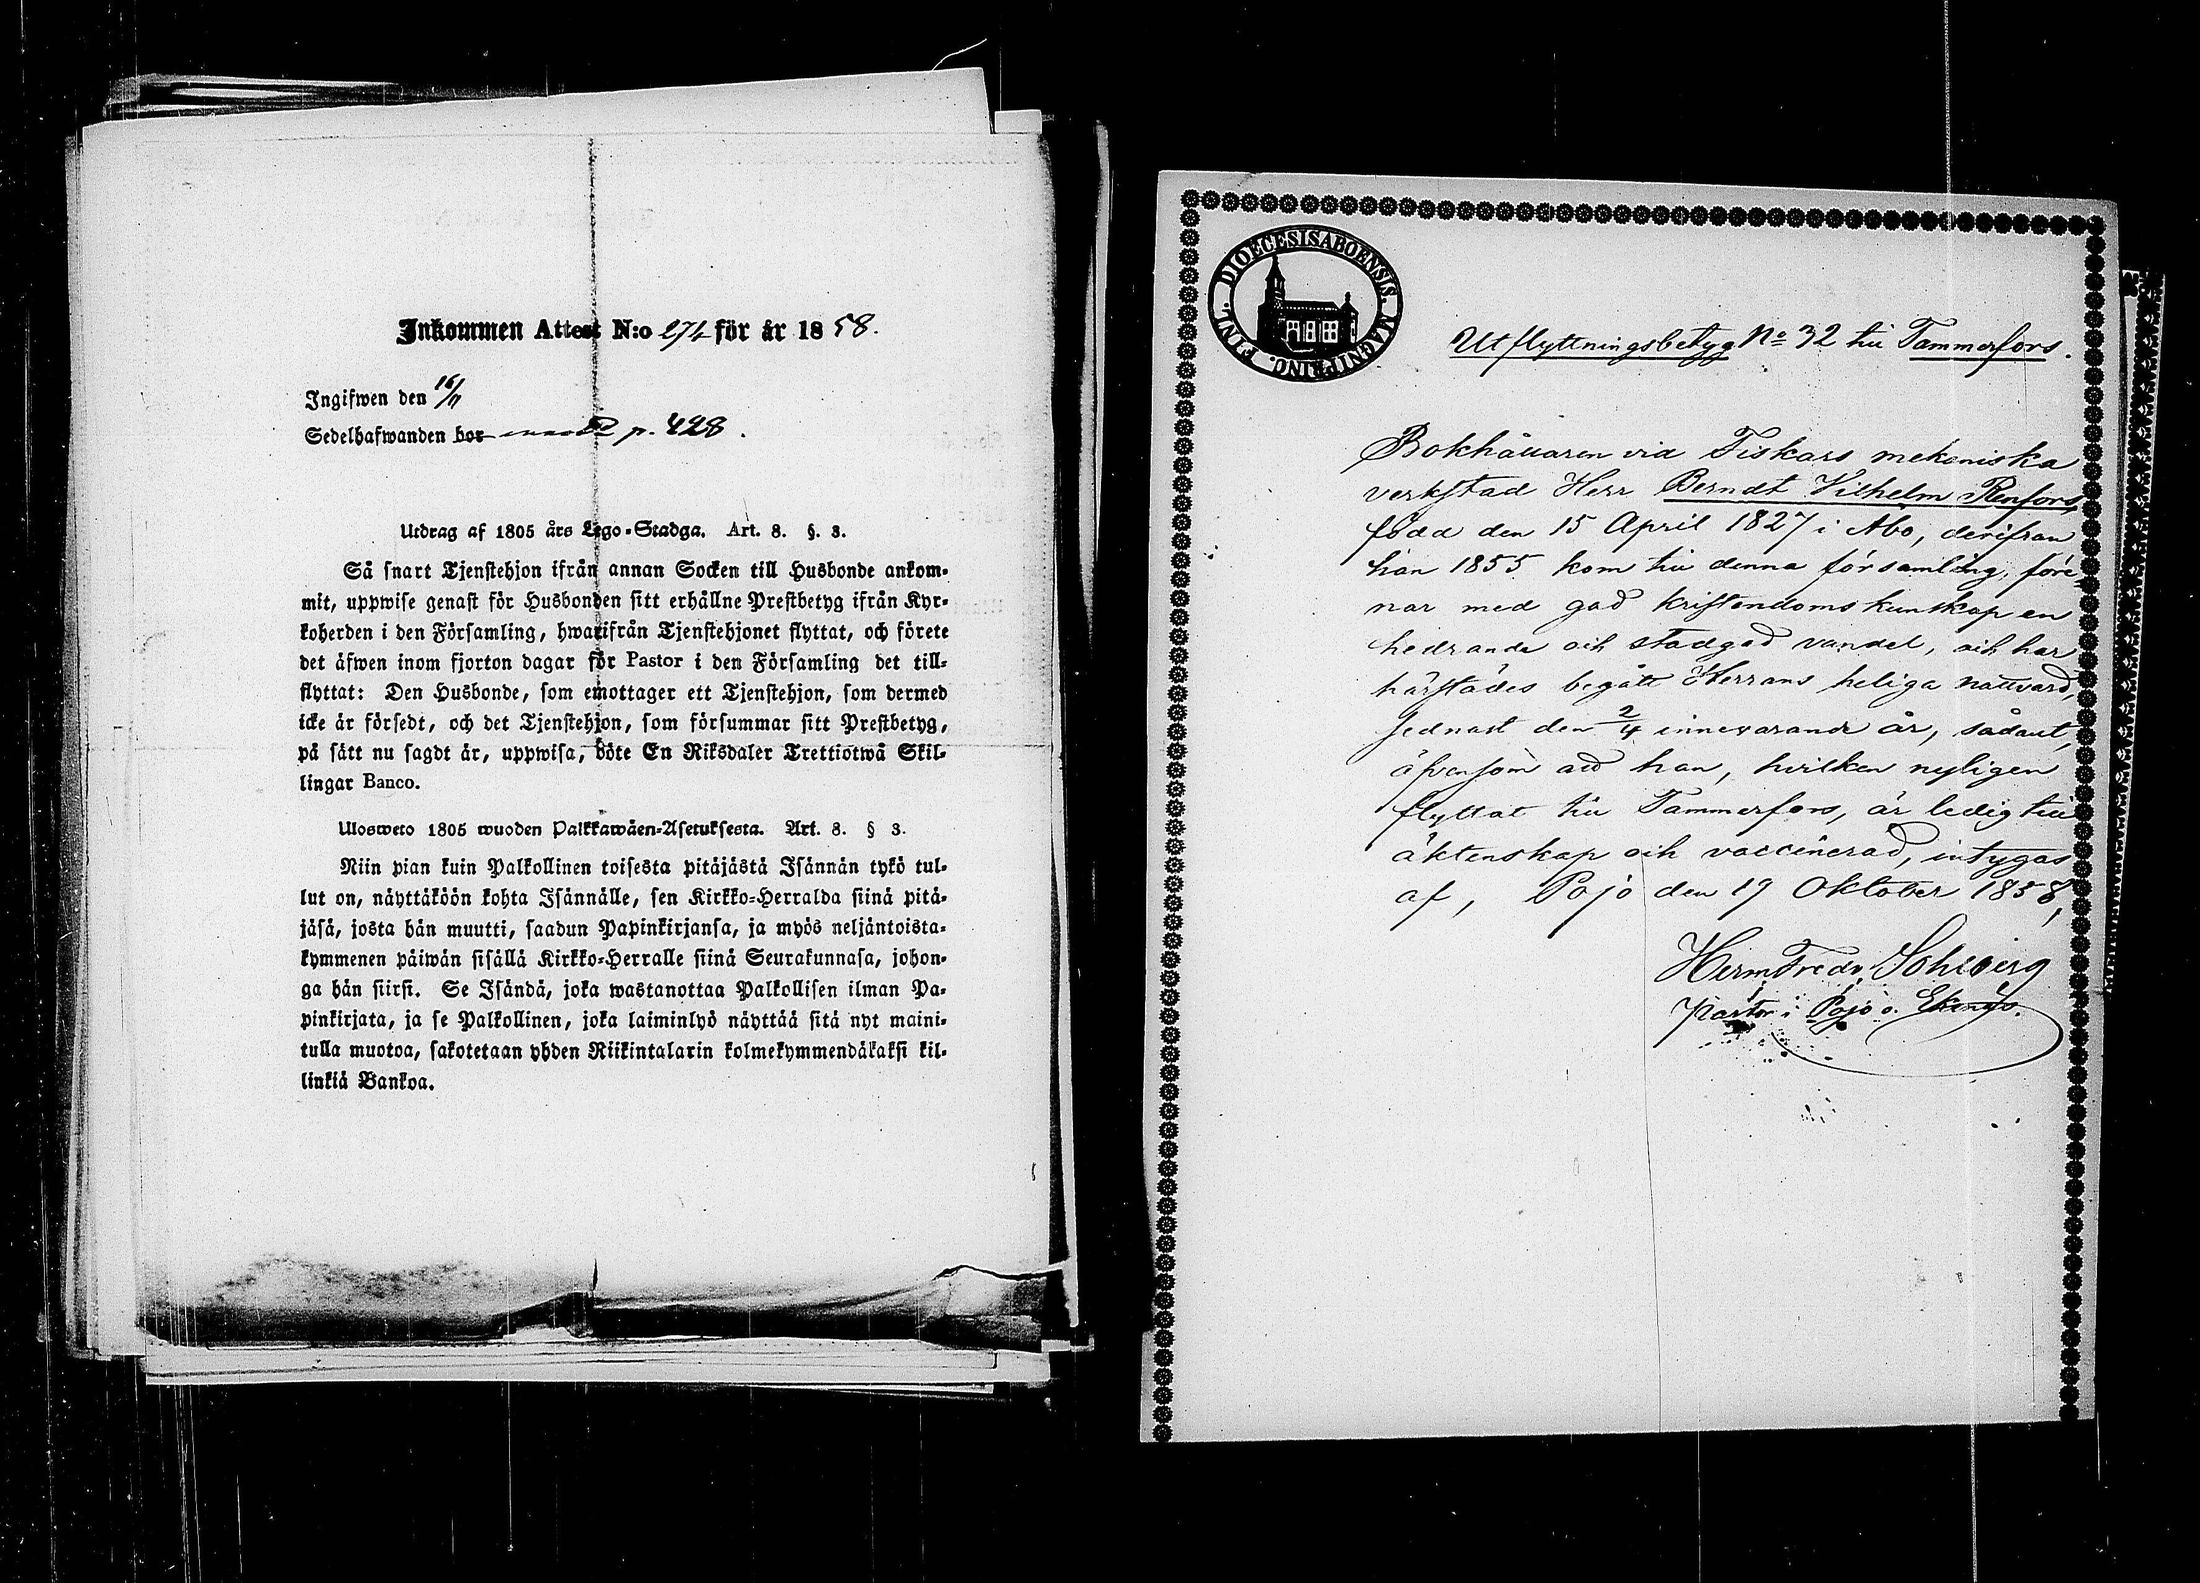 Inkommen Attest N:o 274 för år 1858.
Ingifwen den 16/11
Sedelhafwanden bor p. 428.
Utdrag af 1805 års Lego-Stadga. Art. 8. §. 3.
Så snart Tjenstehjon ifrån annan Socken till Husbonde ankom-
mit, uppwise genast för Husbonden sitt erhållne Prestbetyg ifrån Kyr-
koherden i den Församling, hwarifrån Tjenstehjonet flyttat, och förete
det äfwen inom fjorton dagar för Pastor i den Församling det till-
flyttat: Den Husbonde, som emottager ett Tjenstehjon, som dermed
icke är försedt, och det Tjenstehjon, som försummar sitt Prestbetyg,
på sätt nu sagdt är, uppwisa, böte En Riksdaler Trettiotwå Skil-
lingar Banco.
Ulosweto 1805 wuoden Palkkawäen-Asetuksesta. Art. 8. § 3.
Niin pian kuin Palkollinen toisesta pitäjästä Isännän tykö tul-
lut on, näyttäköön kohta Isännälle, sen Kirkko-Herralda siinä pitä-
jäsä, josta hän muutti, saadun Papinkirjansa, ja myös neljäntoista-
kymmenen päiwän sisällä Kirkko-Herralle siinä Seurakunnasa, johon-
ga hän siirsi. Se Isändä, joka wastanottaa Palkollisen ilman Pa-
pinkirjata, ja se Palkollinen, joka laiminlyö näyttää sitä nyt maini-
tulla muotoa, sakotetaan yhden Riikintalarin kolmekymmendäkaksi kil-
linkiä Bankoa.
DIOECESIS ABOENSIS. MAGNI PRINC. FINL.
Utflyttningsbetyg No 32 till Tammerfors.
Bokhållaren vid Fiskars mekaniska
verkstad Herr Berndt Vilhelm Renfors,
född den 15 April 1827 i Åbo, derifrån
han 1855 kom till denna församling, före-
nar med god kristendomskunskap en
hedrande och stadgad vandel, och har
härstädes begått Herrans heliga nattvard,
sednast den 2/4 innevarande år, sådant,
äfvensom att han, hvilken nyligen
flyttat till Tammerfors, är ledig till
äktenskap och vaccinerad, intygas
af, Pojo den 19 Oktober 1858,
Herm Fredr. Sohlberg
Pastor i Pojo o. Ekenäs.